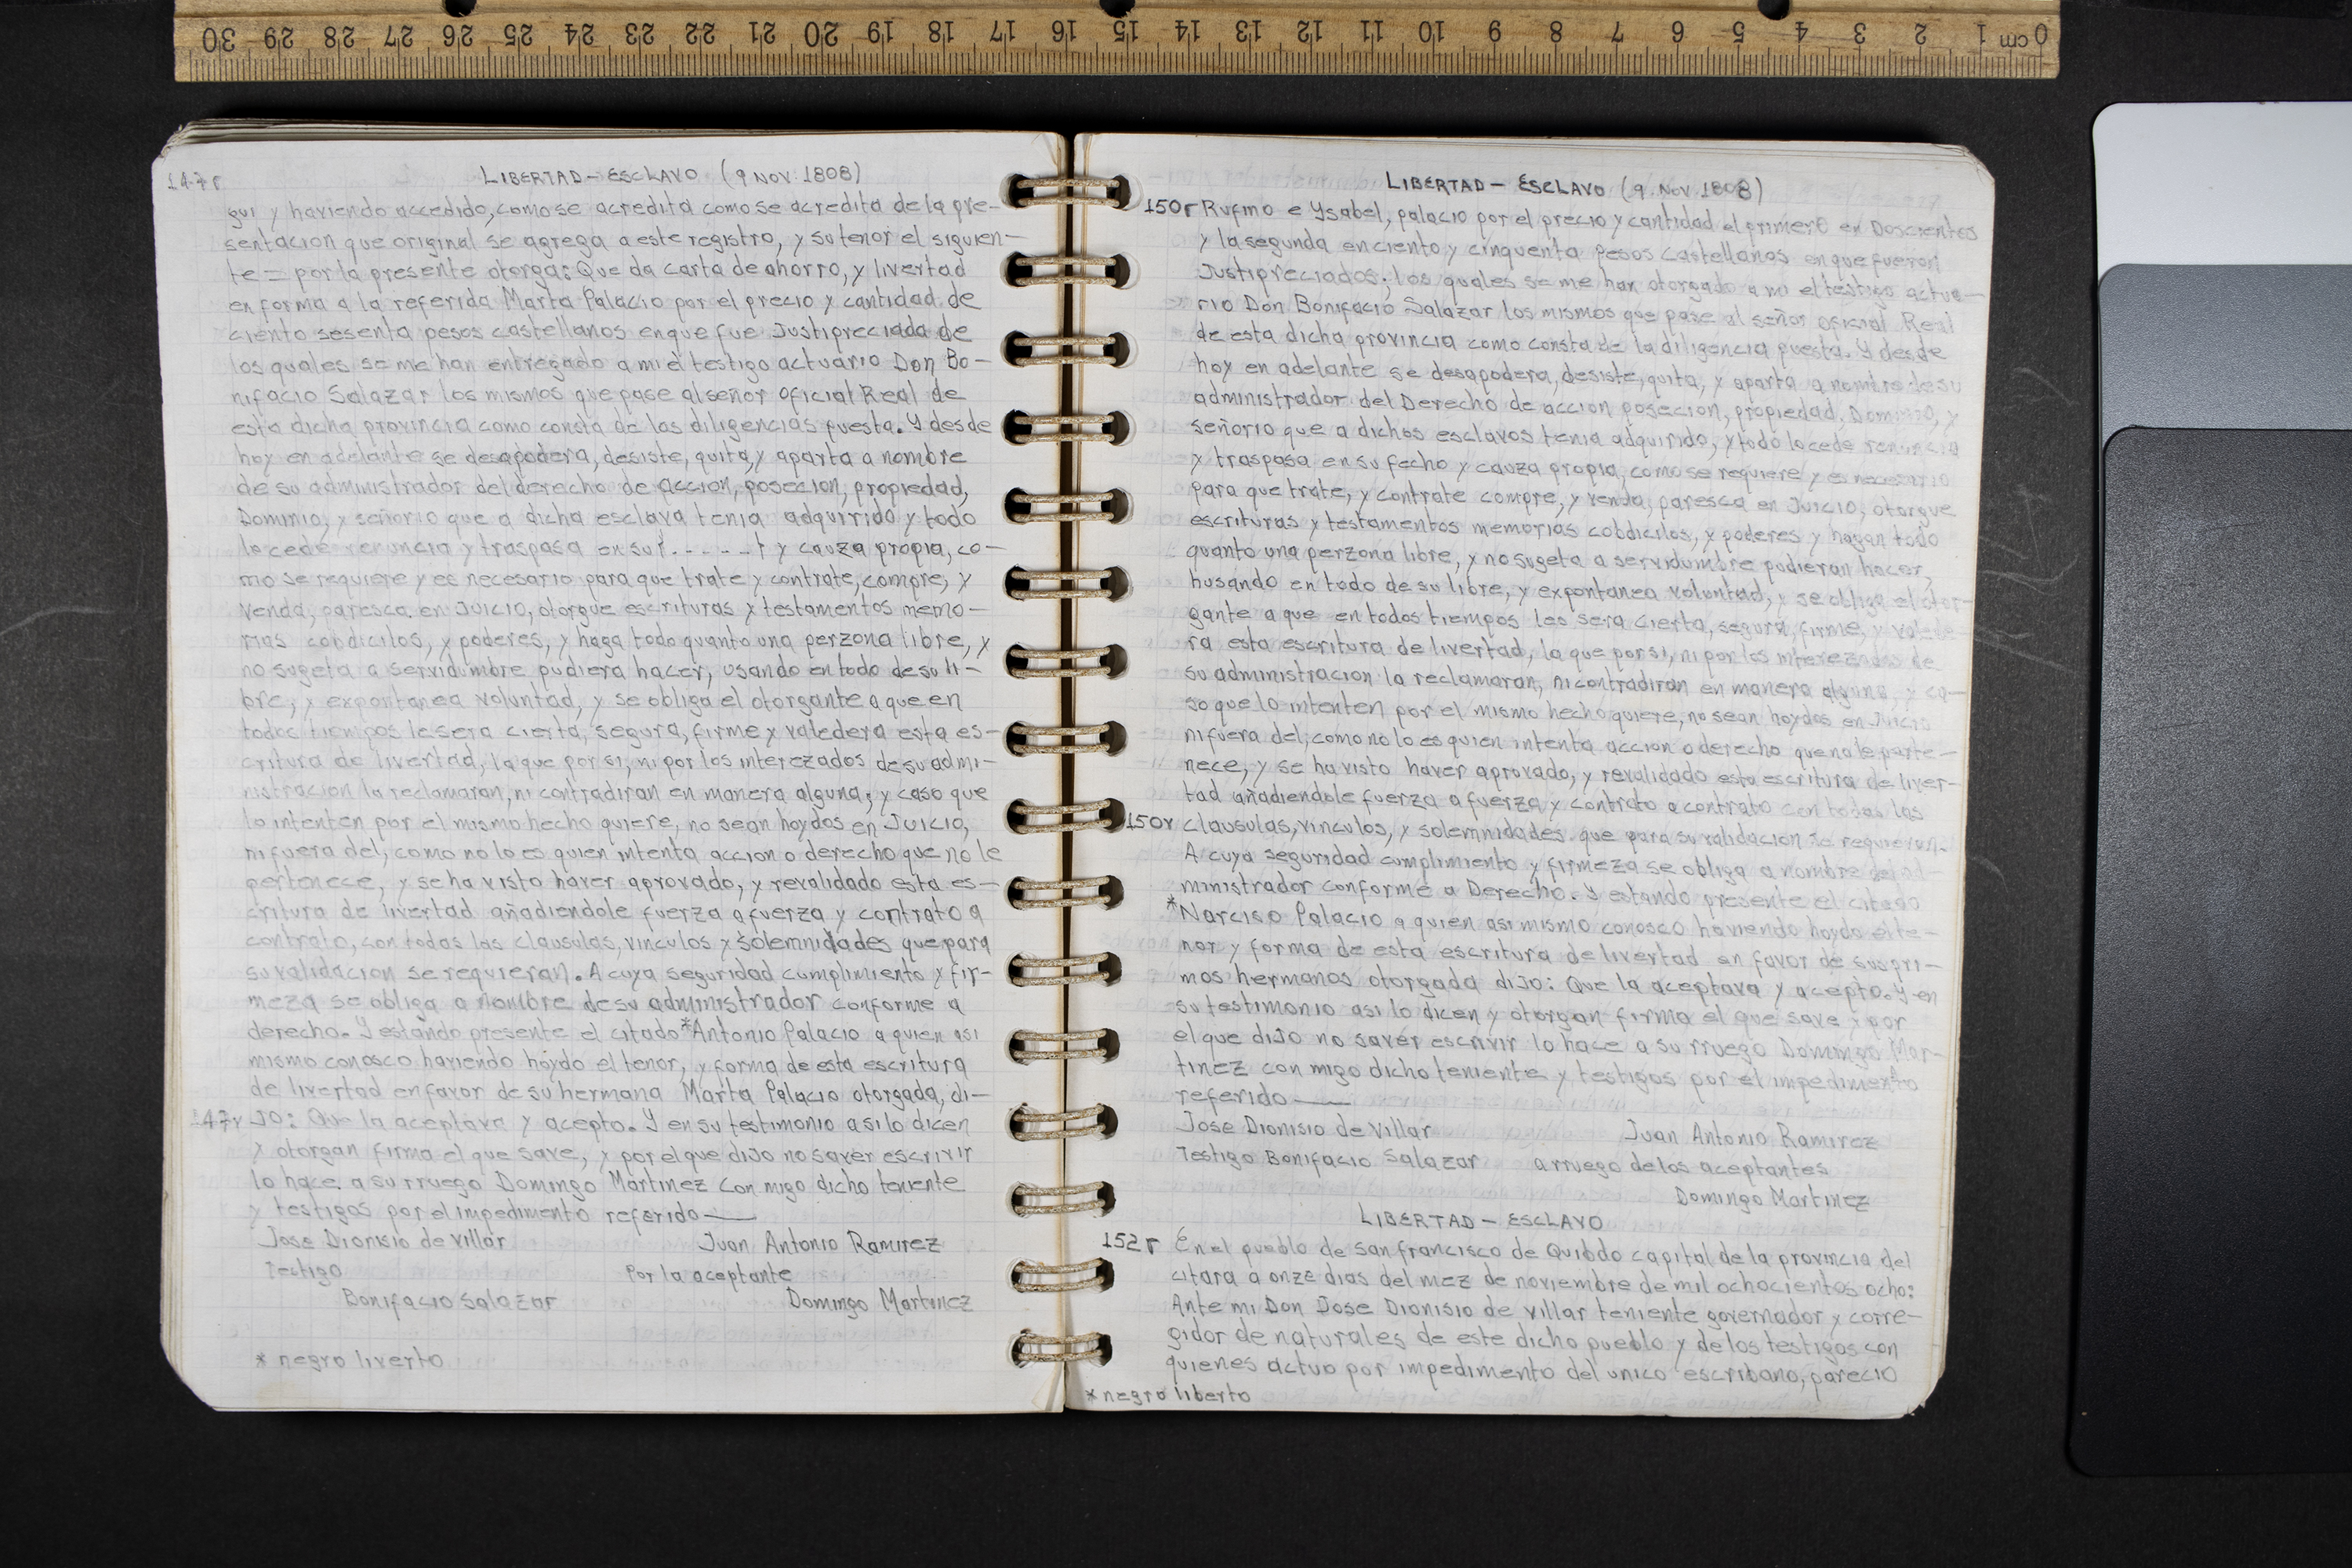 0 cm 1 2 3 4 5 6 7 8 9 10 11 12 13 14 15 16 17 18 19 20 21 22 23 24 25 26 27 28 29 30
LIBERTAD – ESCLAVO (9 NOV. 1808)
147r
gui y haviendo accedido, como se acredita como se acredita de la pre-
sentacion que original se agrega a este registro, y su tenor el siguien-
te = por la presente otorga: Que da carta de ahorro, y livertad
en forma a la referida Marta Palacio por el precio y cantidad de
ciento sesenta pesos castellanos en que fue Justipreciada de
los quales se me han entregado a mi el testigo actuario Don Bo-
nifacio Salazar los mismos que pase al señor oficial Real de
esta dicha provincia como consta de las diligencias puesta. Y desde
hoy en adelante se desapodera, desiste, quita, y aparta a nombre
de su administrador del derecho de accion, posecion, propiedad,
Dominio, y señorio que a dicha esclava tenia adquirido y todo
lo cede renuncia y traspasa en su f.....t y cauza propia, co-
mo se requiere y es necesario para que trate y contrate, compre, y
venda, paresca en Juicio, otorgue escrituras y testamentos memo-
rias cobdicilos, y poderes, y haga todo quanto una perzona libre, y
no sugeta a servidumbre pudiera hacer, usando en todo de su li-
bre, y expontanea voluntad, y se obliga el otorgante a que en
todos tiempos le sera cierta, segura, firme y valedera esta es-
critura de livertad, la que por si, ni por los interezados de su admi-
nistracion la reclamaran, ni contradiran en manera alguna; y caso que
lo intenten por el mismo hecho quiere, no sean hoydos en JUICIO,
ni fuera del, como no lo es quien intenta accion o derecho que no le
pertenece, y se ha visto haver aprovado, y revalidado esta es-
critura de livertad añadiendole fuerza a fuerza y contrato a
contrato, con todas las clausulas, vinculos y solemnidades que para
su validacion se requieran. A cuya seguridad cumplimiento y fir-
meza se obliga a nombre de su administrador conforme a
derecho. Y estando presente el citado *Antonio Palacio a quien asi
mismo conosco haviendo hoydo el tenor, y forma de esta escritura
de livertad en favor de su hermana Marta Palacio otorgada, di-
147v JO: Que la aceptava y acepto. Y en su testimonio asi lo dicen
y otorgan firma el que save, y por el que dijo no saver escrivir
lo hace a su rruego Domingo Martinez con migo dicho teniente
y testigos por el impedimento referido——
Jose Dionisio de Villar Juan Antonio Ramirez
Testigo Por la aceptante
Bonifacio Salazar Domingo Martinez
* negro liverto
LIBERTAD – ESCLAVO (9. NOV 1808)
150r Rufino e Ysabel, palacio por el precio y cantidad el primero en Doscientos
y la segunda en ciento y cinquenta Pesos castellanos en que fueron
Justipreciados; los quales se me han otorgado a mi el testigo actua-
rio Don Bonifacio Salazar los mismos que pase al señor oficial Real
de esta dicha provincia como consta de la diligencia puesta. Y desde
hoy en adelante se desapodera, desiste, quita, y aparta a nombre de su
administrador del Derecho de accion posecion, propiedad, Dominio, y
señorio que a dichos esclavos tenia adquirido, y todo lo cede renuncia
y traspasa en su fecho y cauza propia, como se requiere y es necesario
para que trate, y contrate compre, y venda, paresca en Juicio, otorgue
escrituras y testamentos memorias cobdicilos, y poderes y hagan todo
quanto una perzona libre, y no sugeta a servidumbre pudieran hacer,
husando en todo de su libre, y expontanea voluntad, y se obliga el otor-
gante a que en todos tiempos les sera cierta, segura, firme, y valede-
ra esta escritura de livertad, la que por si, ni por los interezados de
su administracion la reclamaran, ni contradiran en manera alguna, y ca-
so que lo intenten por el mismo hecho quiere, no sean hoydos en Juicio
ni fuera del, como no lo es quien intenta accion o derecho que no le perte-
nece, y se ha visto haver aprovado, y revalidado esta escritura de liver-
tad añadiendole fuerza a fuerza y contrato a contrato con todas las
150v clausulas, vinculos, y solemnidades que para su validacion se requieran.
A cuya seguridad cumplimiento y firmeza se obliga a nombre del ad-
ministrador conforme a Derecho. Y estando presente el citado
*Narciso Palacio a quien asi mismo conosco haviendo hoydo el te-
nor y forma de esta escritura de livertad en favor de sus pri-
mos hermanos otorgada dijo: Que la aceptava y acepto. Y en
su testimonio asi lo dicen y otorgan firma el que save y por
el que dijo no saver escrivir lo hace a su rruego Domingo Mar-
tinez con migo dicho teniente y testigos por el impedimento
referido——
Jose Dionisio de Villar Juan Antonio Ramirez
Testigo Bonifacio Salazar a rruego de los aceptantes
Domingo Martinez
LIBERTAD – ESCLAVO
152r En el pueblo de San francisco de Quibdo capital de la provincia del
citara a onze dias del mez de noviembre de mil ochocientos ocho:
Ante mi Don Jose Dionisio de Villar teniente governador y corre-
gidor de naturales de este dicho pueblo y de los testigos con
quienes actuo por impedimento del unico escribano, parecio
* negro liberto